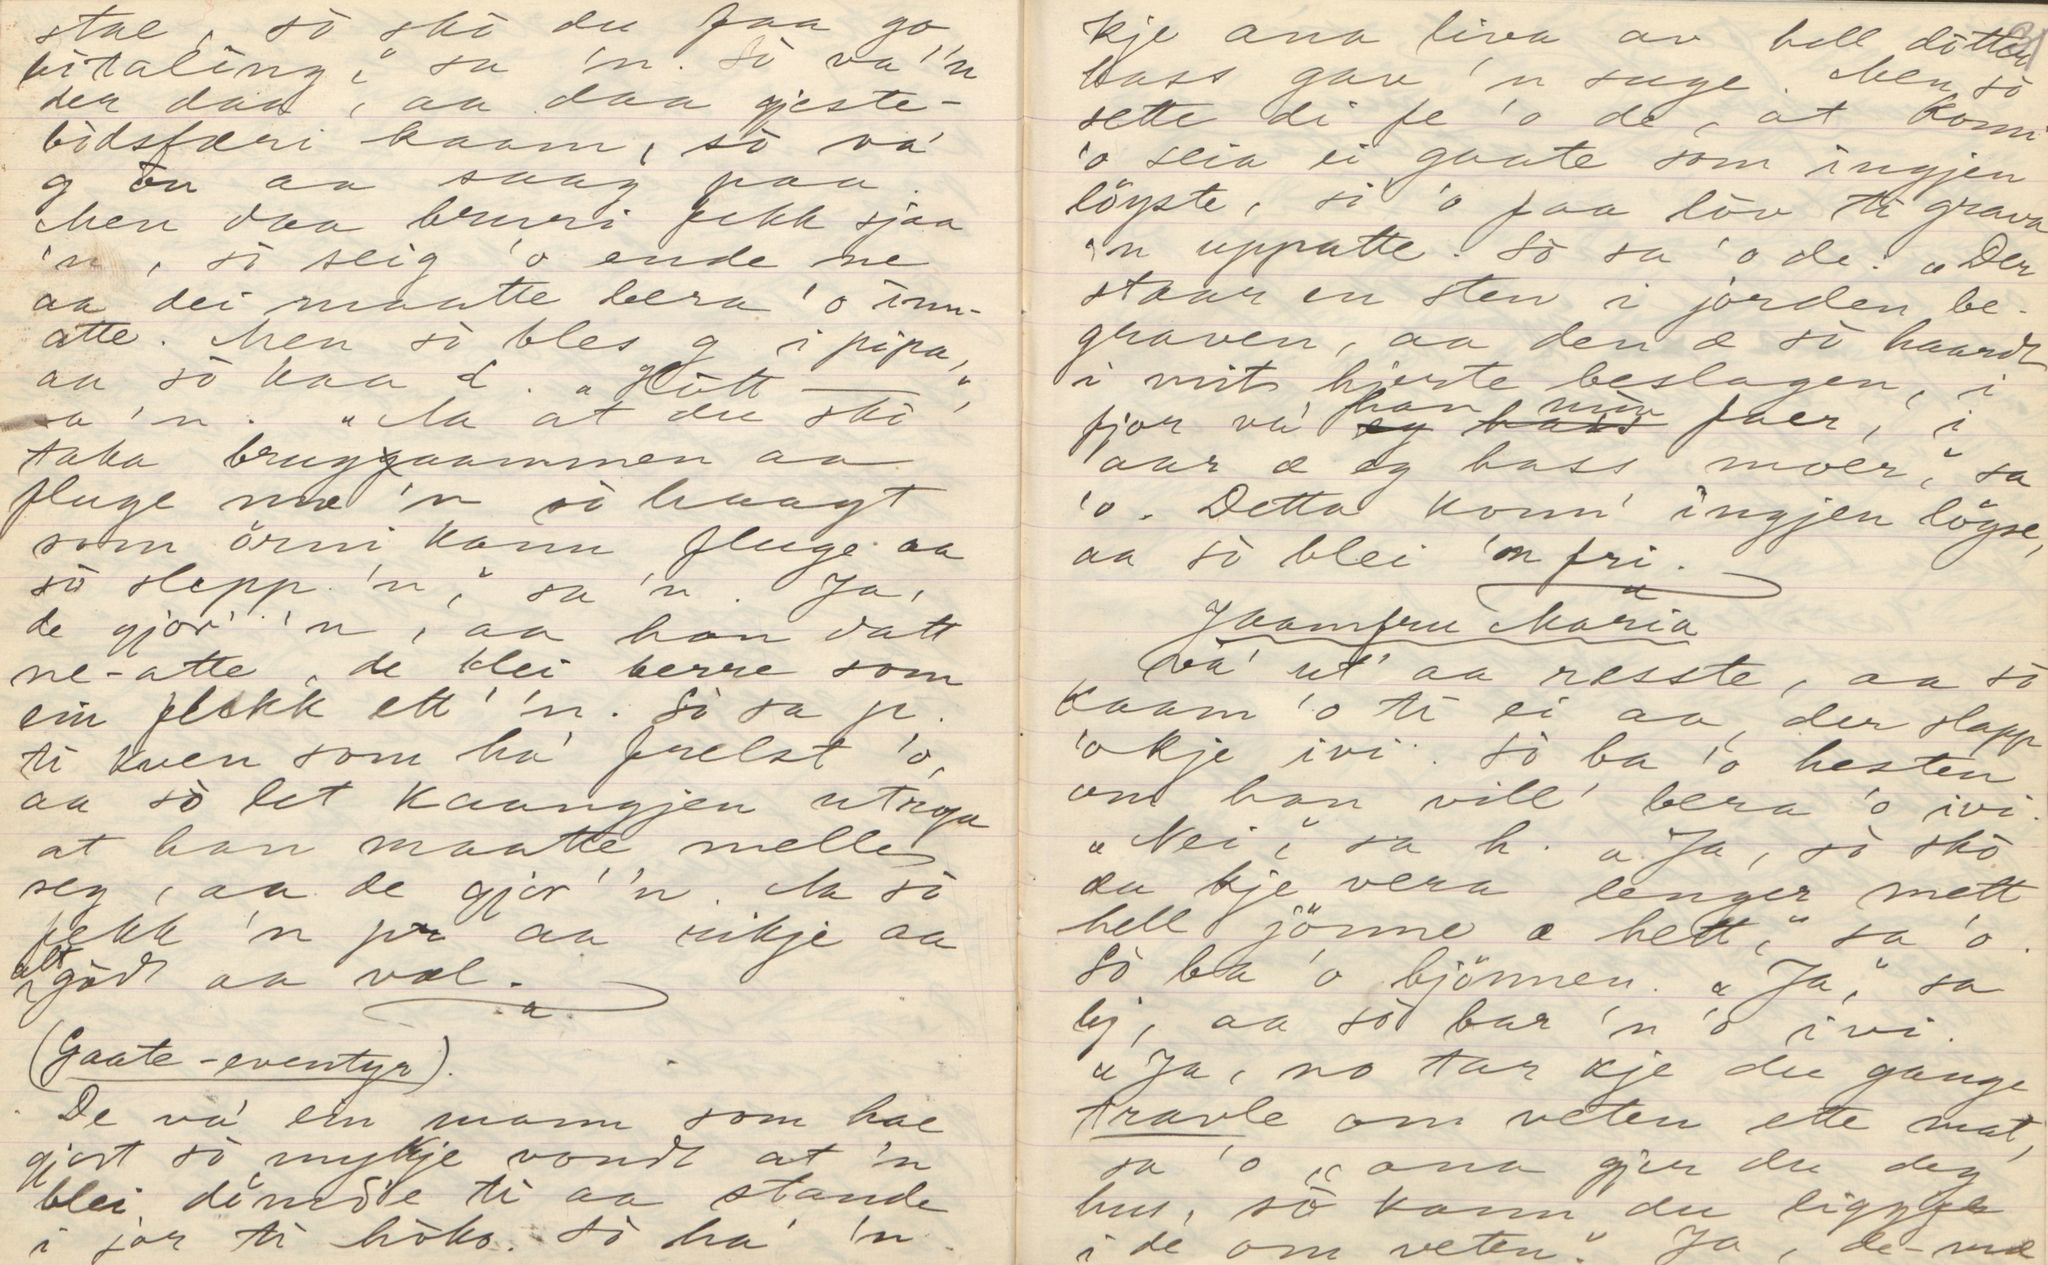 stae, sò skò du faa go
bitaling," sa 'n. Sò va' 'n
der daa, aa daa gjeste-
bòdsfæri kaam, sò va'
g òu aa saag paa.
Men daa bruri fekk sjaa
'n, sò seig 'o ende ne
aa dei maatte bera 'o inn-
atte. Men sò bles g i pipa,
aa sò kaa d. "Gött —",
sa 'n. "Aa at du skò
taka bruggaammen aa
fluge mæ 'n sò haagt
som örni kann fluge aa
sò slepp 'n," sa 'n. Ja,
de gjor' 'n, aa han datt
ne-atte, de blei berre som
ein flekk ett' 'n. Sò sa pr.
ti kven som ha' frelst 'o,
aa sò let kaangjen utropa
at han maatte melle
seg, aa de gjor' 'n. Aa sò
fekk 'n pr aa rikje aa
alt gòdt aa væl.
(Gaate-eventyr).
De va' ein mann som hae
gjort sò mykje vondt at 'n
blei dömde ti aa stande
i jor ti hòko. Sò ha' 'n
kje ana liva av hell dötter
hass gav 'n suge. Men sò
sette di fe 'o de, at konn'
'o seia ei gaate som ingjen
löyste, si' 'o faa lòv ti grava
'n uppatte. Sò sa 'o de: "Der
staar en sten i jorden be-
graven, aa den æ sò haardt
i mit hjerte beslagen, i
fjor va' han min faer, i
aar æ eg hass moer," sa
'o. Detta konn' ingjen löyse,
aa sò blei 'n fri.
Jaamfru Maria
va' ut' aa resste, aa sò
kaam 'o ti ei aa, der slapp
'o kje ivi. Sò ba 'o hesten
om han vill' bera 'o ivi.
"Nei," sa h. "Ja, sò skò
du kje vera lenger mett
hell jönne æ hett," sa 'o.
Sò ba 'o bjönnen. "Ja," sa
bj, aa sò bar 'n 'o ivi.
"Ja, no tar kje du gange
travle om veten ette mat,
sa 'o, "ana gjer du deg
hus, sò kann du liggje
i de om veten." Ja, de-mæ